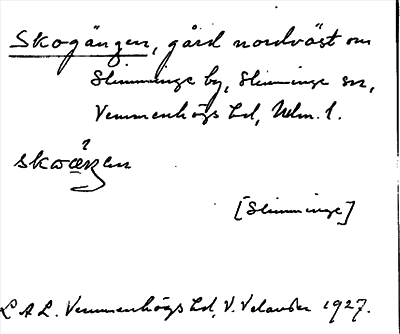 Skogängen, gård nordväst om
Slimminge by, Slimminge sn,
Vemmenhögs hd, Malm. l.
skoäŋen
[Slimminge]
L A L. Vemmenhögs hd, V. Velander 1927.